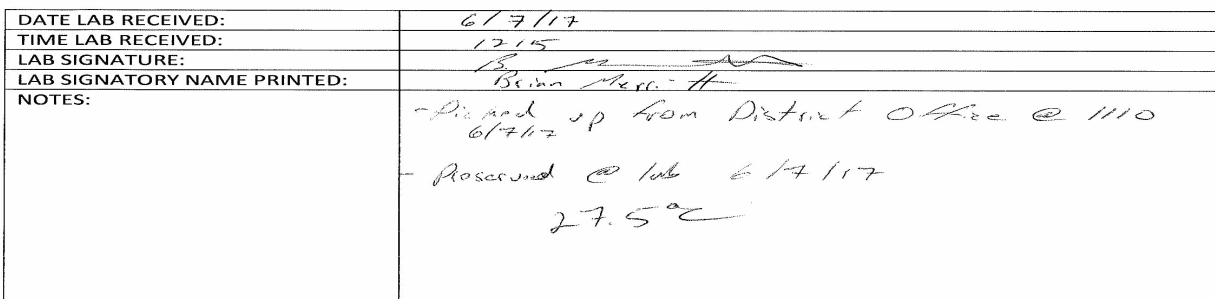 DATE LAB RECEIVED: 6/7/17
TIME LAB RECEIVED: 1215
LAB SIGNATURE: B.
LAB SIGNATORY NAME PRINTED: Brian Merritt
NOTES:
- Picked up from District Office @ 1110
6/7/17
- Preserved @ lab 6/7/17
27.5°C